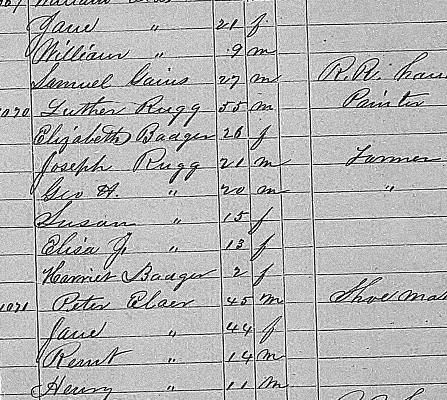 Jane " 21 f
William " 9 m
Samuel Gains 27 m R.R.
1070 Luther Rugg 55 m Painter
Elizabeth Badger 26 f
Joseph Rugg 21 m Farmer
Geo H. " 20 m "
Susan " 15 f
Eliza J. " 13 f
Harriet Badger 2 f
1071 Peter 45 m Shoe
Jane " 44 f
" 14 m
Henry " 11 m